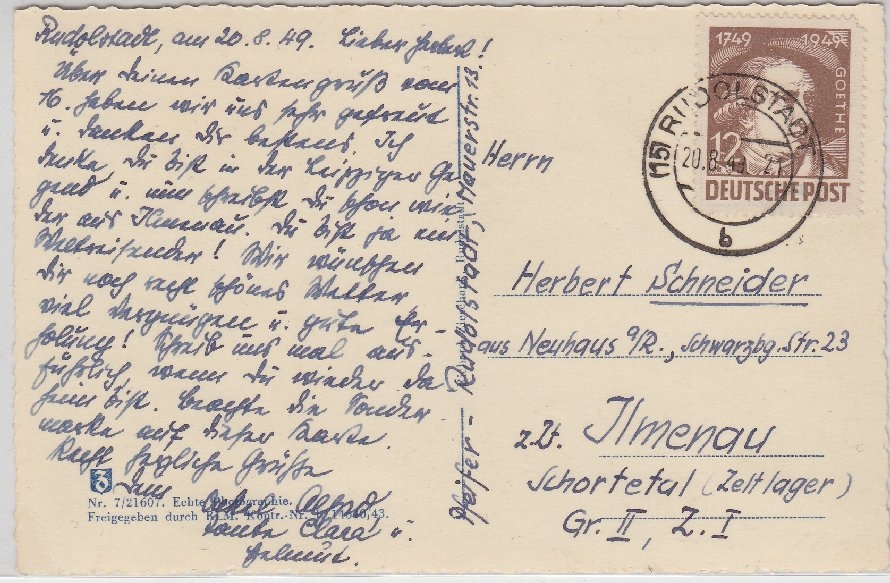 Rudolstadt, am 20.8.49. Lieber Herbert!
Über deinen Kartengruß vom
16. haben wir uns sehr gefreut
u. danken dir bestens. Ich
denke du bist in der Leipziger Ge
gend u. nun schreibst du schon wie
der aus Ilmenau. Du bist ja ein
Weltreisender! Wir wünschen
dir noch recht schönes Wetter
viel Vergnügen u. gute Er-
holung! Schreib uns mal aus-
führlich, wenn du wieder da
heim bist. Beachte die Sonder
marke auf dieser Karte.
Recht herzliche Grüße
dein Onkel Alfred,
Tante Clara u.
Helmut.
Nr. 7/21607. Echte Photographie.
Freigegeben durch RLM. Kontr.-Nr. 14640/43.
Pfeifer - Rudolstadt, Mauerstr. 13.
1749 1949
GOETHE
12
DEUTSCHE POST
(15) RUDOLSTADT
20.8.49. 21
b
Herrn
Herbert Schneider
aus Neuhaus a/R., Schwarzbg. Str. 23
z.Zt. Ilmenau
Schortetal (Zeltlager)
Gr. II, Z. I